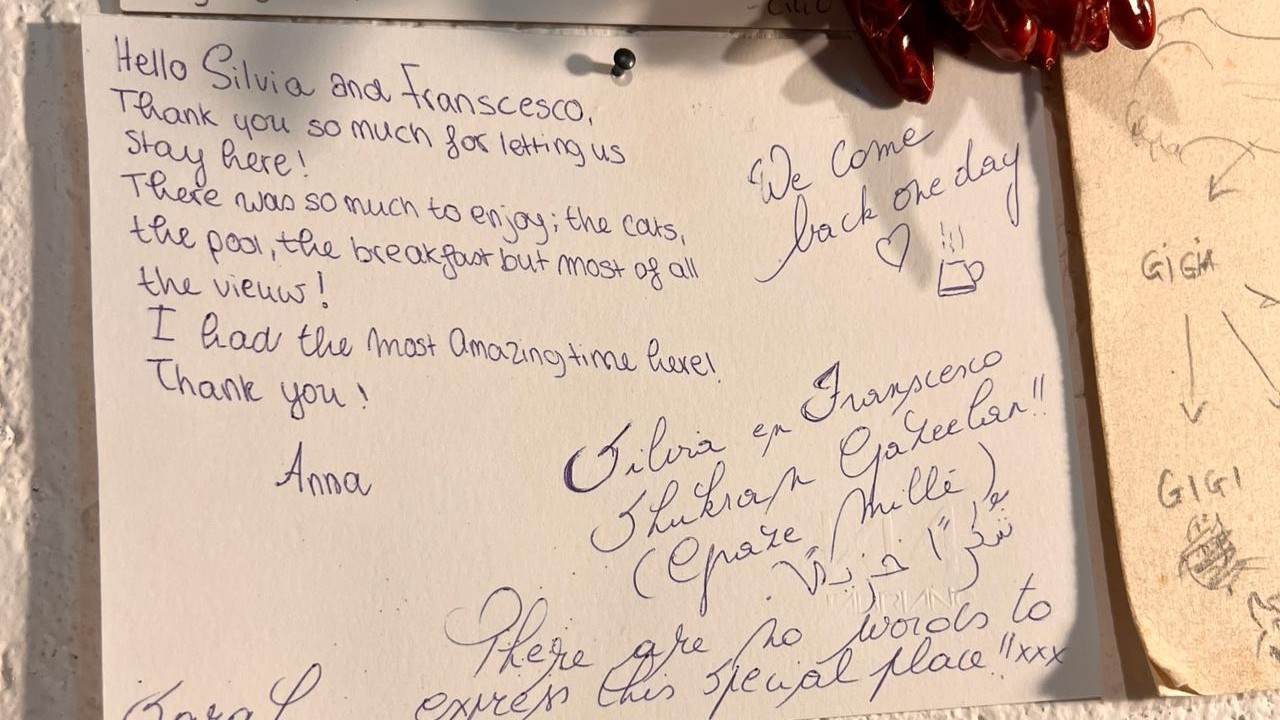 Hello Silvia and Franscesco,
Thank you so much for letting us
stay here!
There was so much to enjoy; the cats,
the pool, the breakfast but most of all
the vieuw!
I had the most amazing time here!
Thank you!
Anna
We come
back one day
Silvia en Franscesco
Shukran Gazeelan!!
(Graze Millé)
شكرا جزيلاً
There are no words to
express this special place!! xxx
GIGIA
GIGI